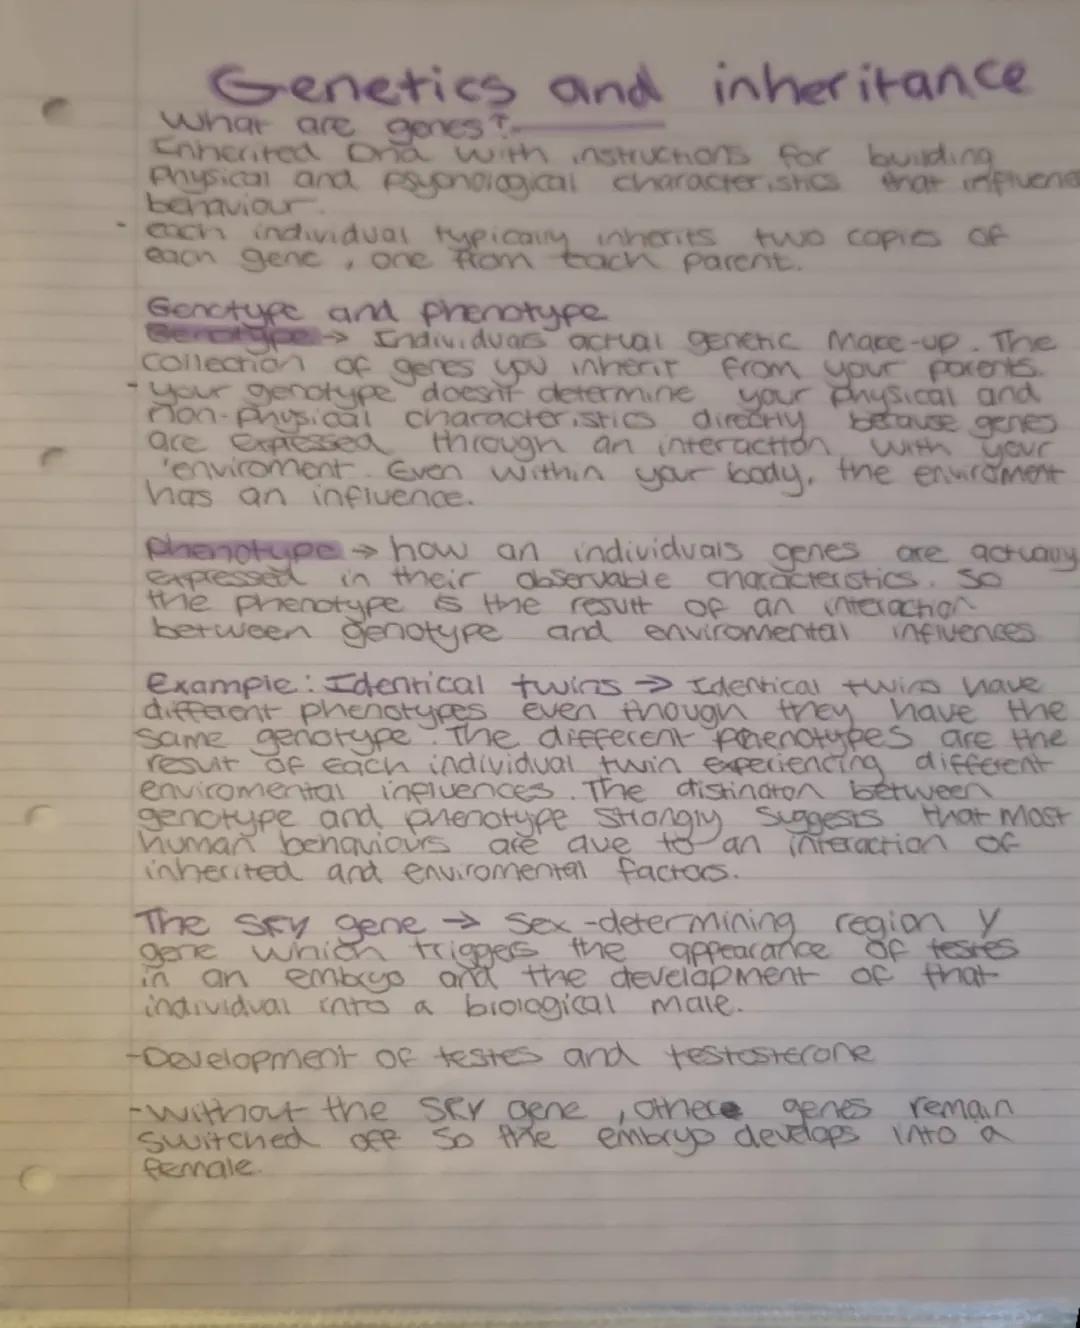 Genetics and inheritance
What are genes?
Inherited Dna with instructions for building
Physical and psychological characteristics that influence
behaviour.
- each individual typically inherits two copies of
each gene, one from each parent.
Genotype and phenotype
Genotype → Individuals actual genetic make-up. The
collection of genes you inherit from your parents.
- your genotype doesn't determine your physical and
non-physical characteristics directly because genes
are expressed through an interaction with your
'enviroment. Even within your body, the enviroment
has an influence.
Phenotype → how an individuals genes are actually
expressed in their observable characteristics. So
the phenotype is the result of an interaction
between genotype and enviromental influences
Example: Identical twins → Identical twins have
different phenotypes even though they have the
same genotype. The different phenotypes are the
result of each individual twin experiencing different
enviromental influences. The distinction between
genotype and phenotype strongly suggests that most
human behaviours are due to an interaction of
inherited and enviromental factors.
The SRY gene → Sex-determining region Y
gene which triggers the appearance of testes
in an embryo and the development of that
individual into a biological male.
-Development of testes and testosterone
-Without the SRY gene, other genes remain
switched off so the embryo develops into a
female.